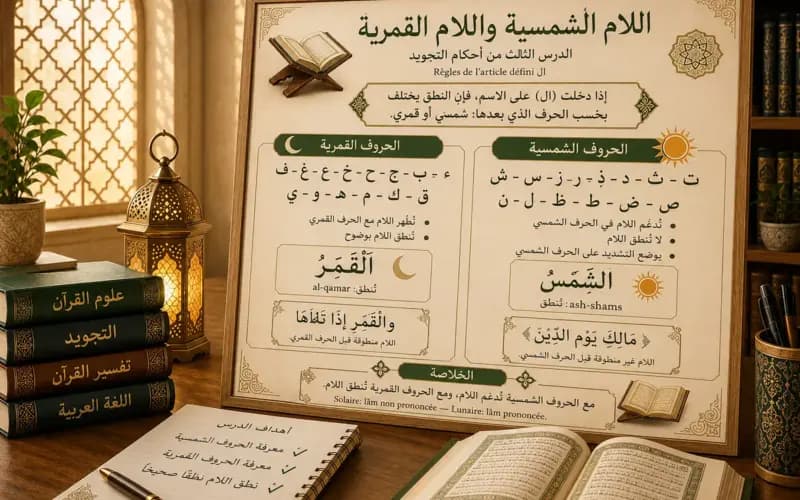 اللام الشمسية واللام القمرية
الدرس الثالث من أحكام التجويد
Règles de l'article défini ال
إذا دخلت (ال) على الاسم، فإن النطق يختلف
بخسب الحرف الذي بعدها: شمسي أو قمري.
الحروف الشمسية
ت - ث - د - ذ - ر - ز - س - ش
ص - ض - ط - ظ - ل - ن
تُدغم اللام في الحرف الشمسي
لا تُنطق اللام
يوضع التشديد على الحرف الشمسي
الشَّمْسُ
تُنطق: ash-shams
﴿ مَالِكِ يَوْمِ الدِّيْنَ ﴾
اللام غير منطوقة قبل الحرف الشمسي.
الحروف القمرية
ء - ب - ج - ح - خ - ع - غ - ف
ق - ك - م - هـ - و - ي
تُظهر اللام مع الحرف القمري
تُنطق اللام بوضوح
اَلْقَمِرُ
تُنطق: al-qamar
والْقَمَرِ إِذَا
اللام منطوقة قبل الحرف القمري
الخلاصة
مع الحروف الشمسية تُدغم اللام، ومع الحروف القمرية تُنطق اللام.
Solaire: lâm non prononcée — Lunaire: lâm prononcée.
علوم القرآن
التجويد
تفسير القرآن
اللغة العربية
اهداف الدرس
معرفة الحروف الشمسية ✓
معرفة الحروف القمرية ✓
نطق اللام نطقًا صحيحًا ✓